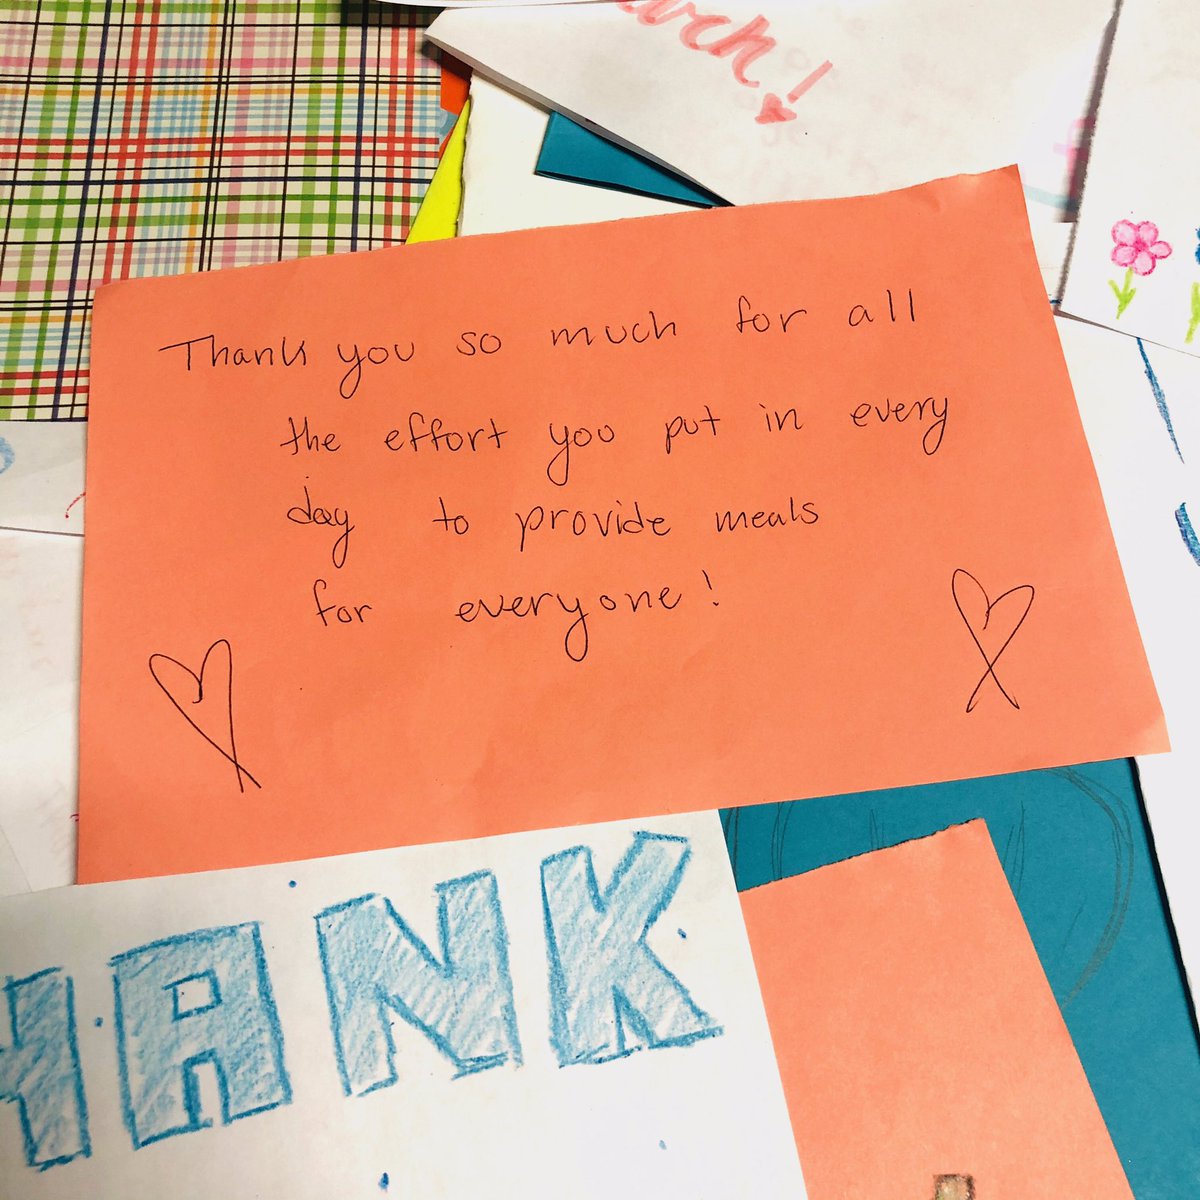 Thank you so much for all
the effort you put in every
day to provide meals
for everyone!
HANK